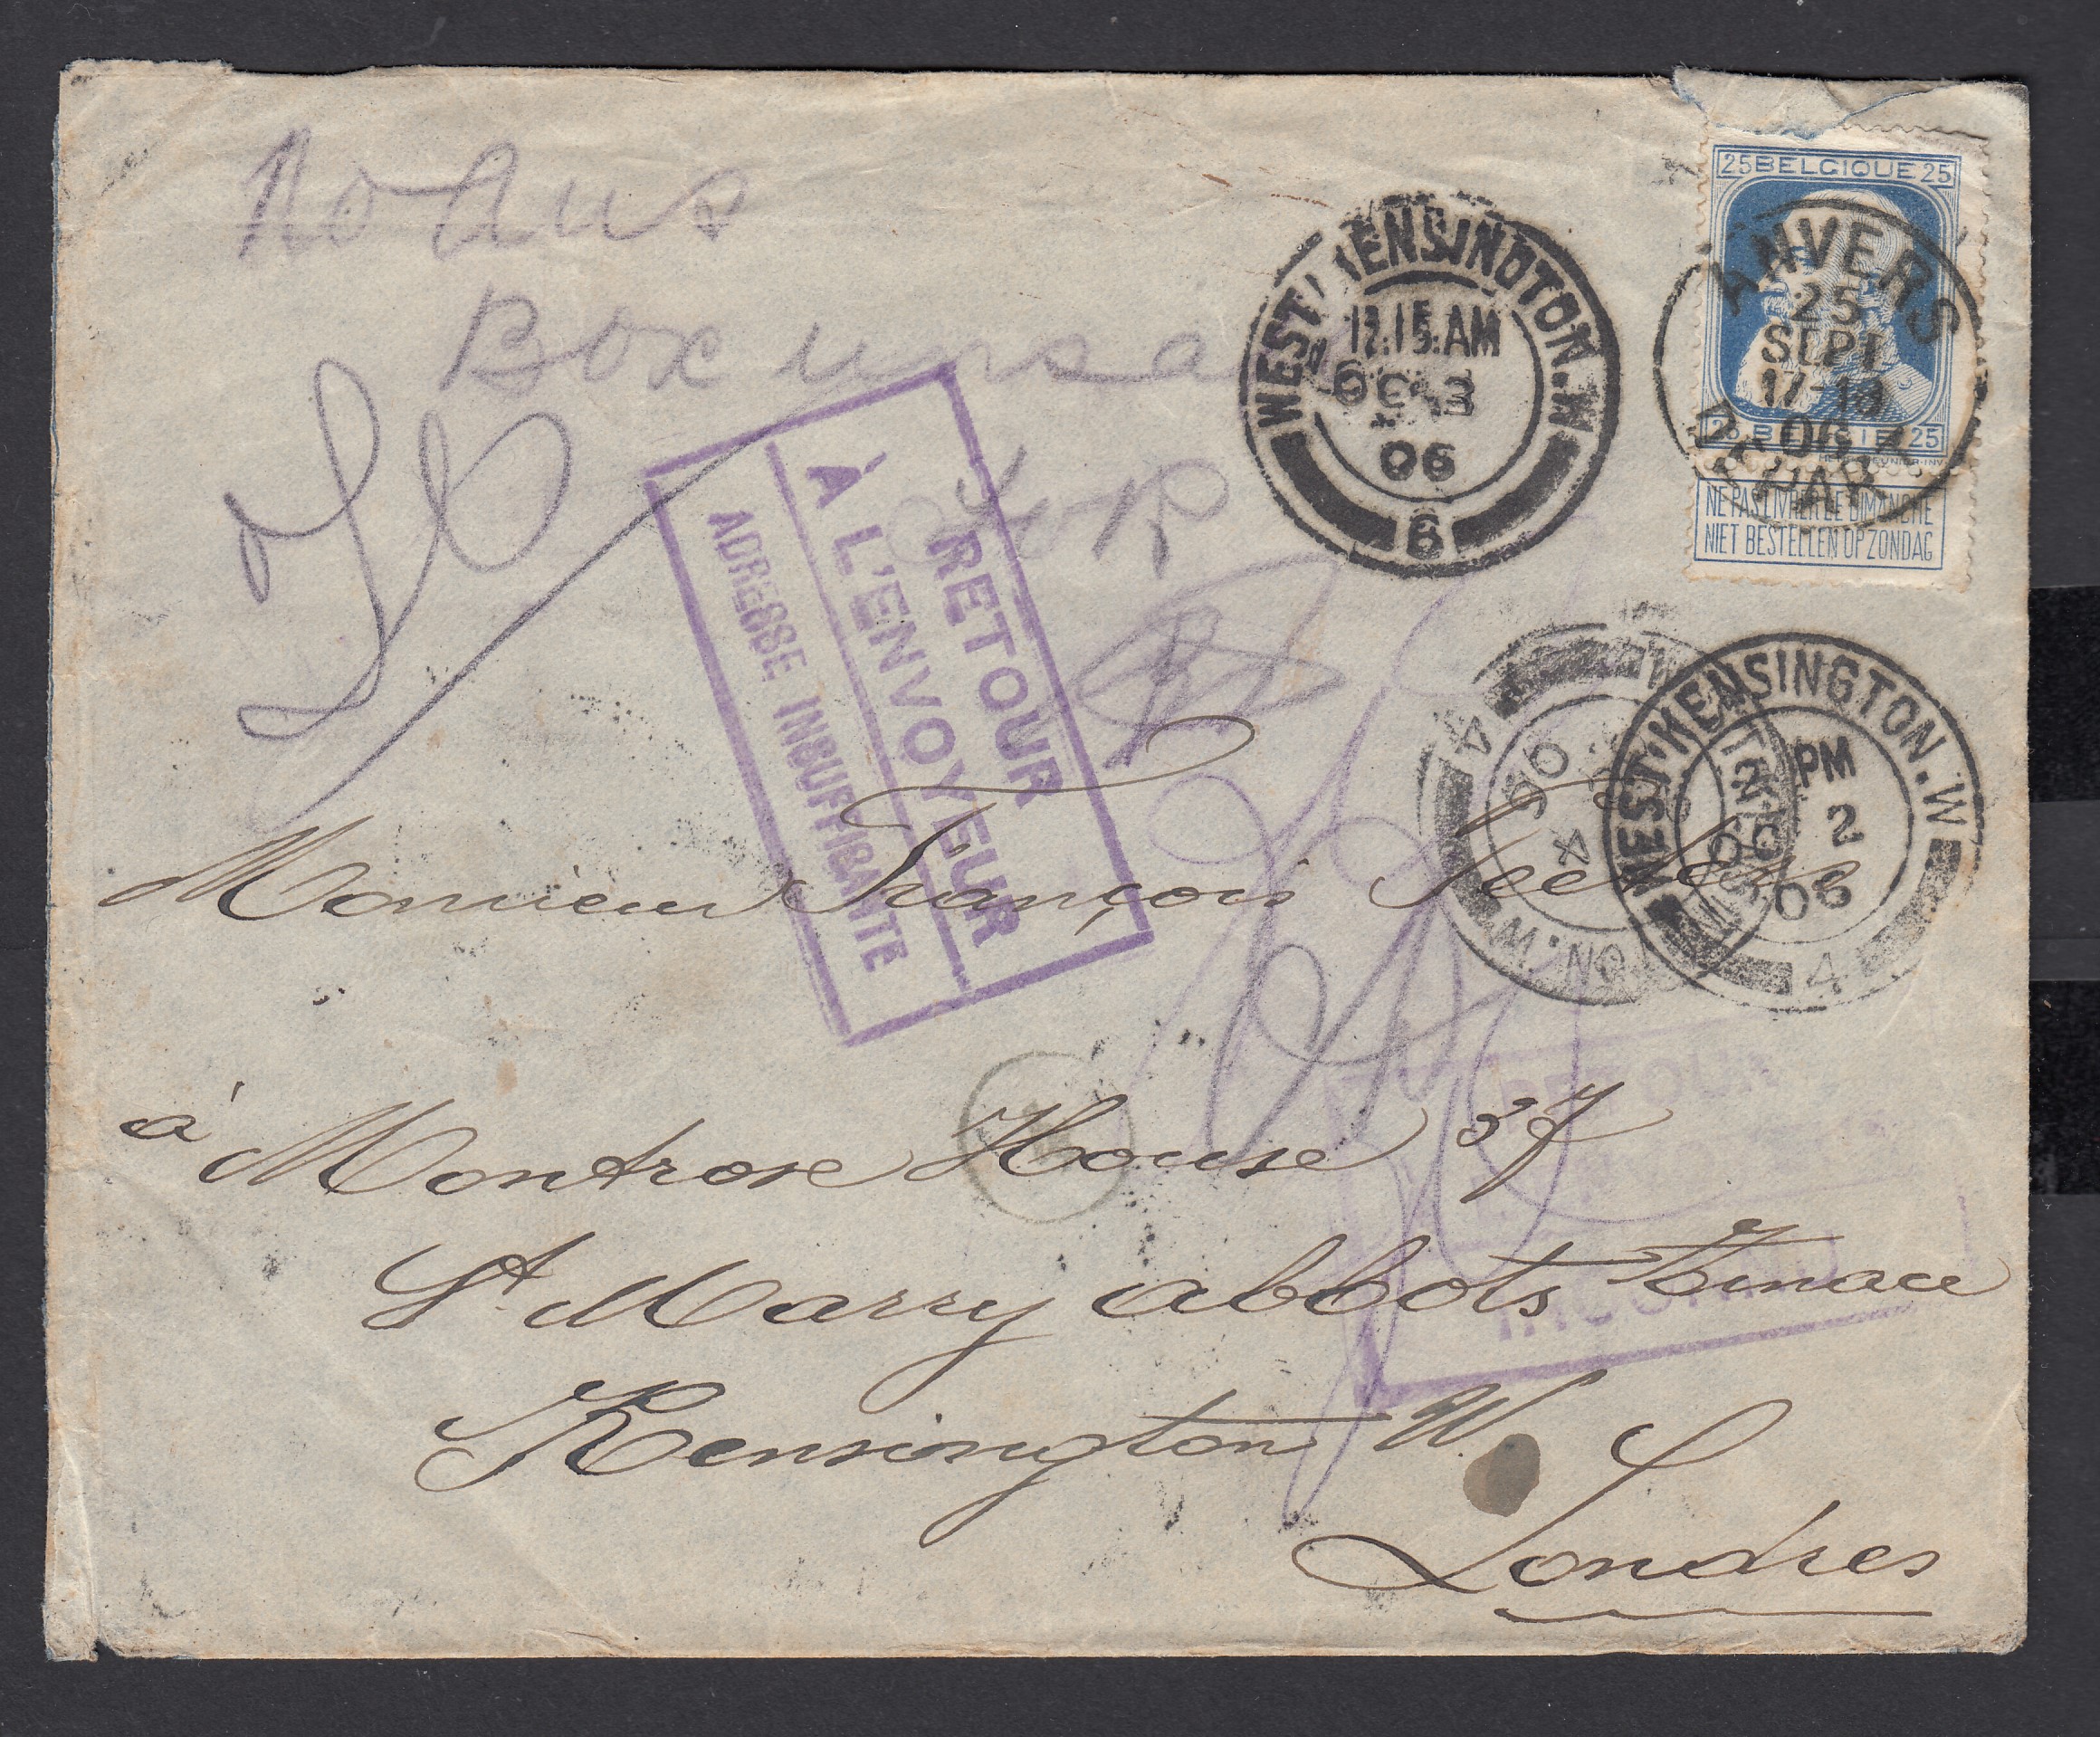 No Ans
Box
25 BELGIQUE 25
25 BELGIE 25
NE PAS LIVRER LE DIMANCHE
NIET BESTELLEN OP ZONDAG
ANVERS
25
SEPT
17-18
06
DEPART
WEST KENSINGTON.W
12.15.AM
OC 3
06
6
WEST KENSINGTON.W
PM
OC 2
06
4
06
4
RETOUR
À L'ENVOYEUR
ADRESSE INSUFFISANTE
RETOUR
INCONNU
Monsieur François
à Montrose House 37
St Marry abbots Terrace
Kensington W.
Londres